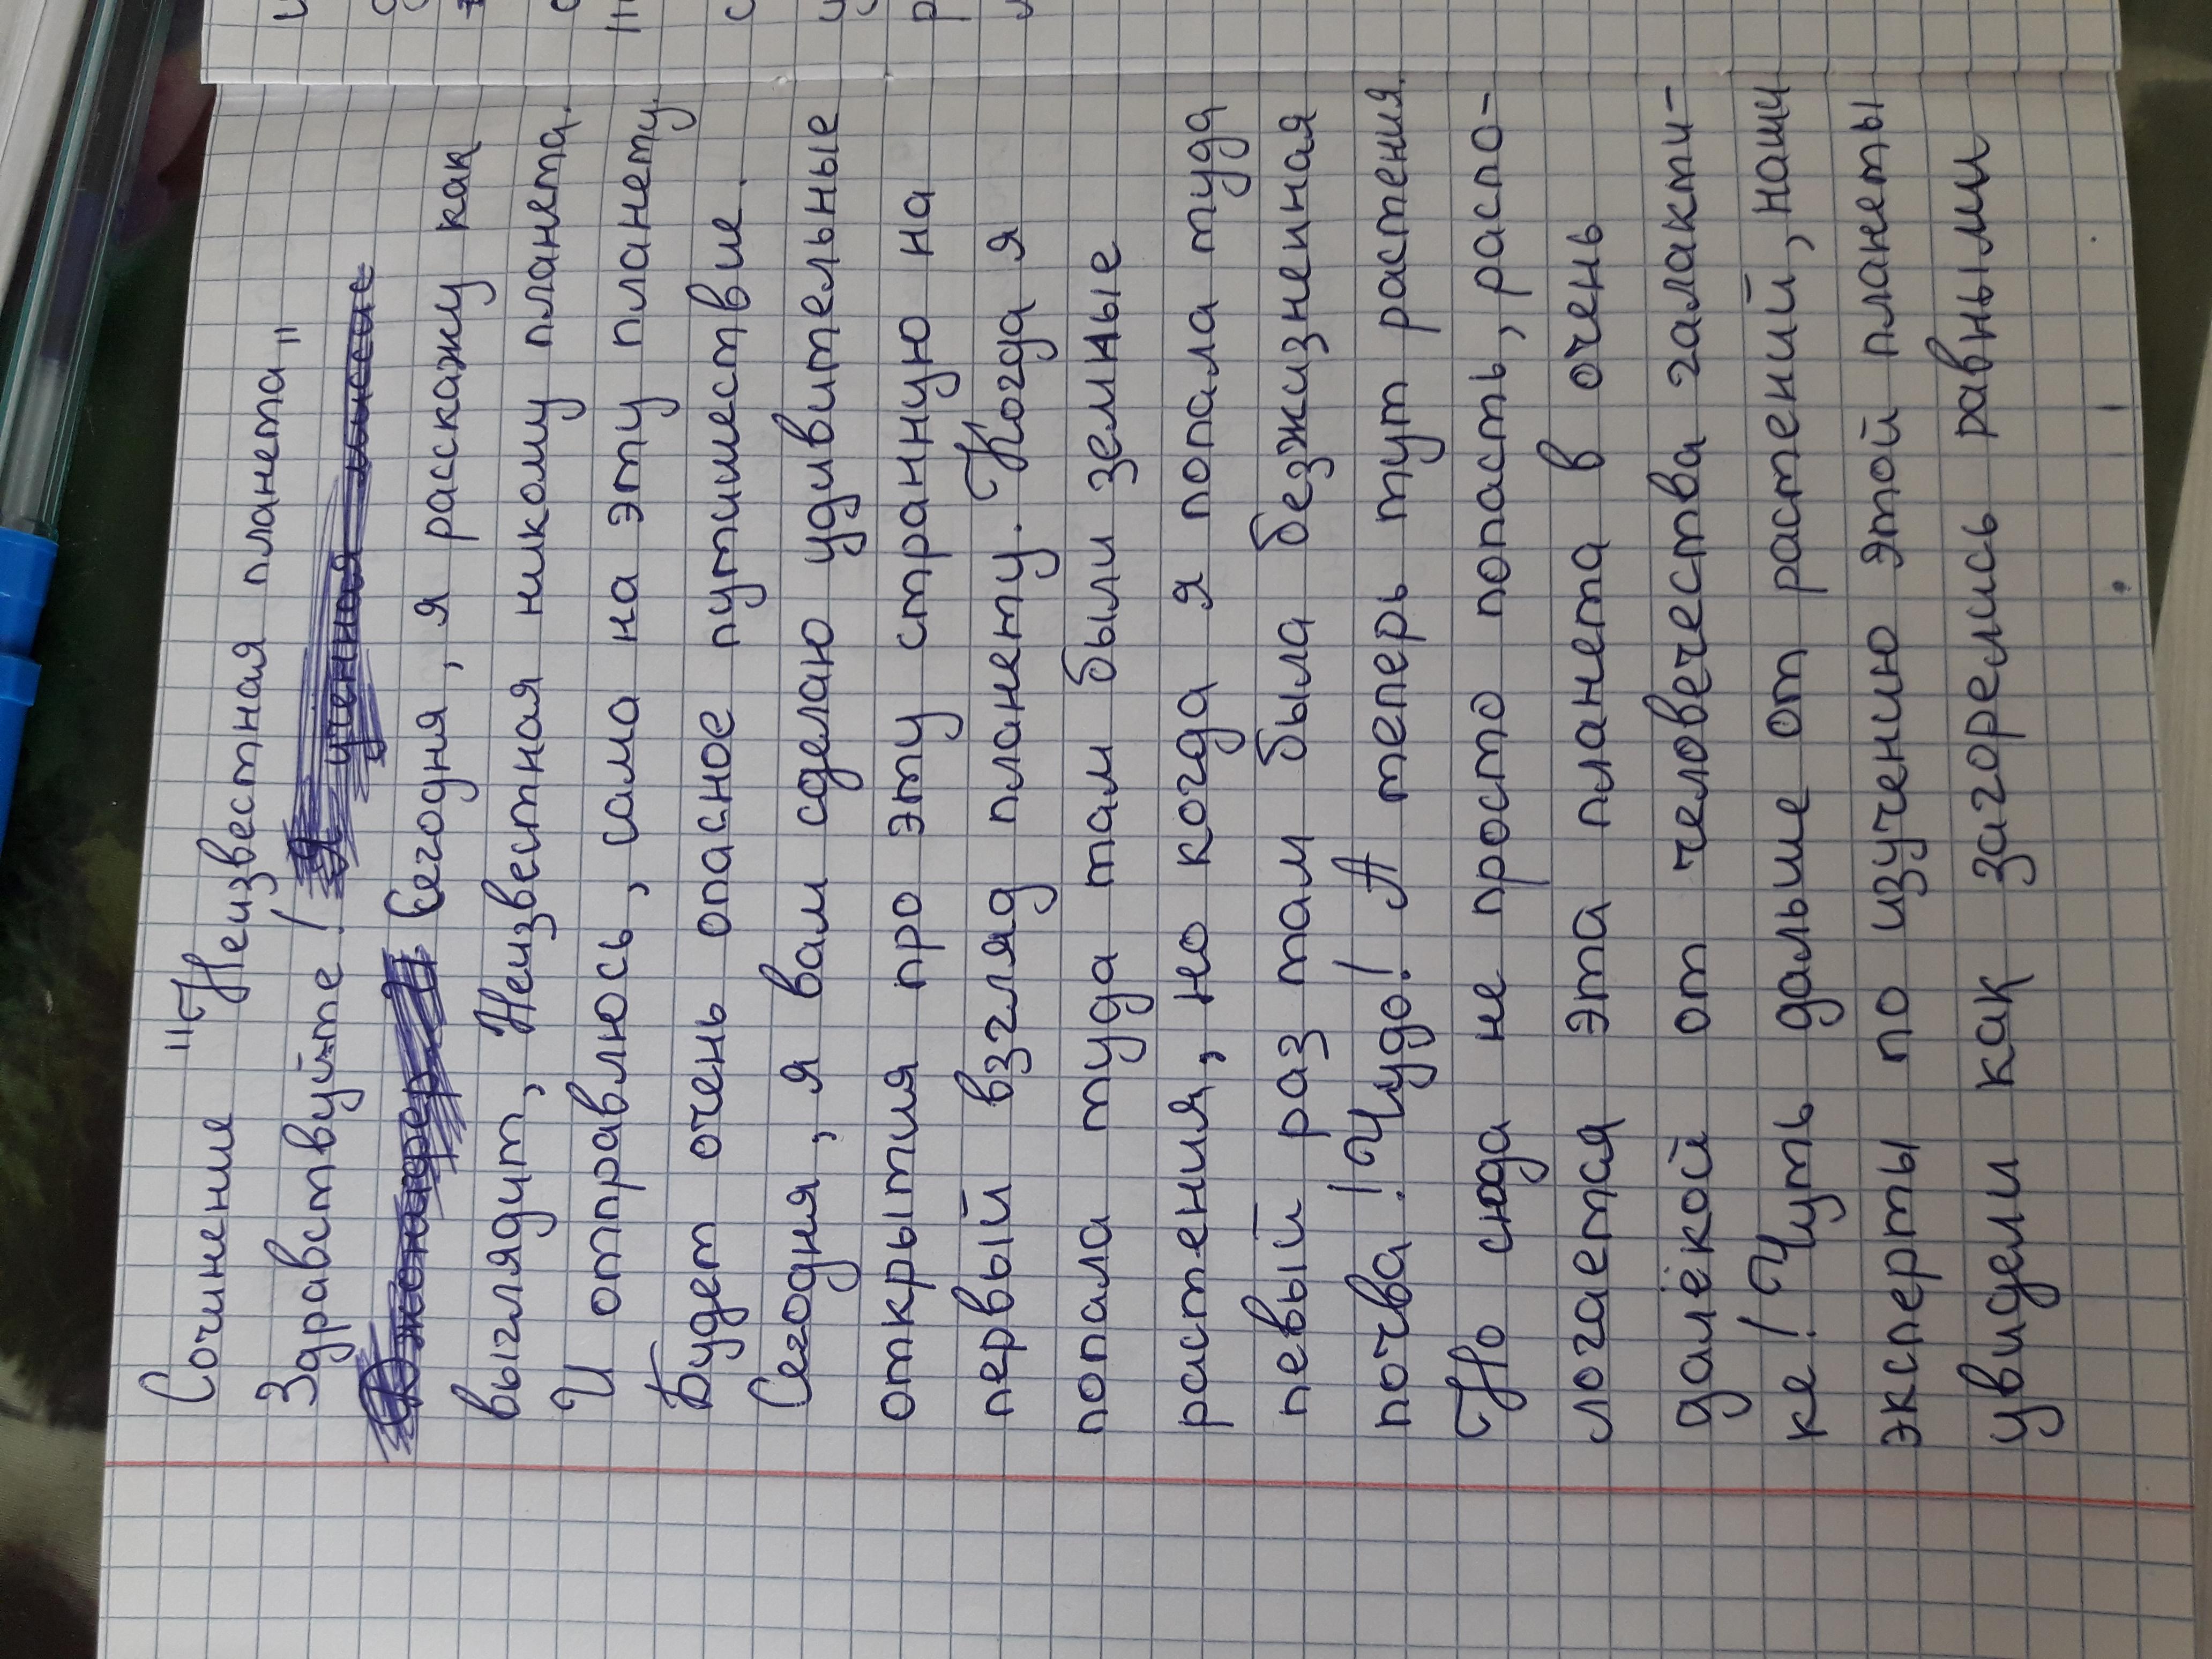 Сочинение "Неизвестная планета"
Здравствуйте!
Сегодня, я расскажу как
выглядит, Неизвестная никому планета.
И отправлюсь, сама на эту планету.
Будет очень опасное путишествие.
Сегодня, я вам сделаю удивительные
открытия про эту странную на
первый взгляд планету. Когда я
попала туда там были земные
растения, но когда я попала туда
певый раз там была безжизненная
почва! Чудо! А теперь тут растения.
Но сюда не просто попасть, распо-
логается эта планета в очень
далёкой от человечества галакти-
ке! Чуть дальше от растений, наши
эксперты по изучению этой планеты
увидели как загорелись равными